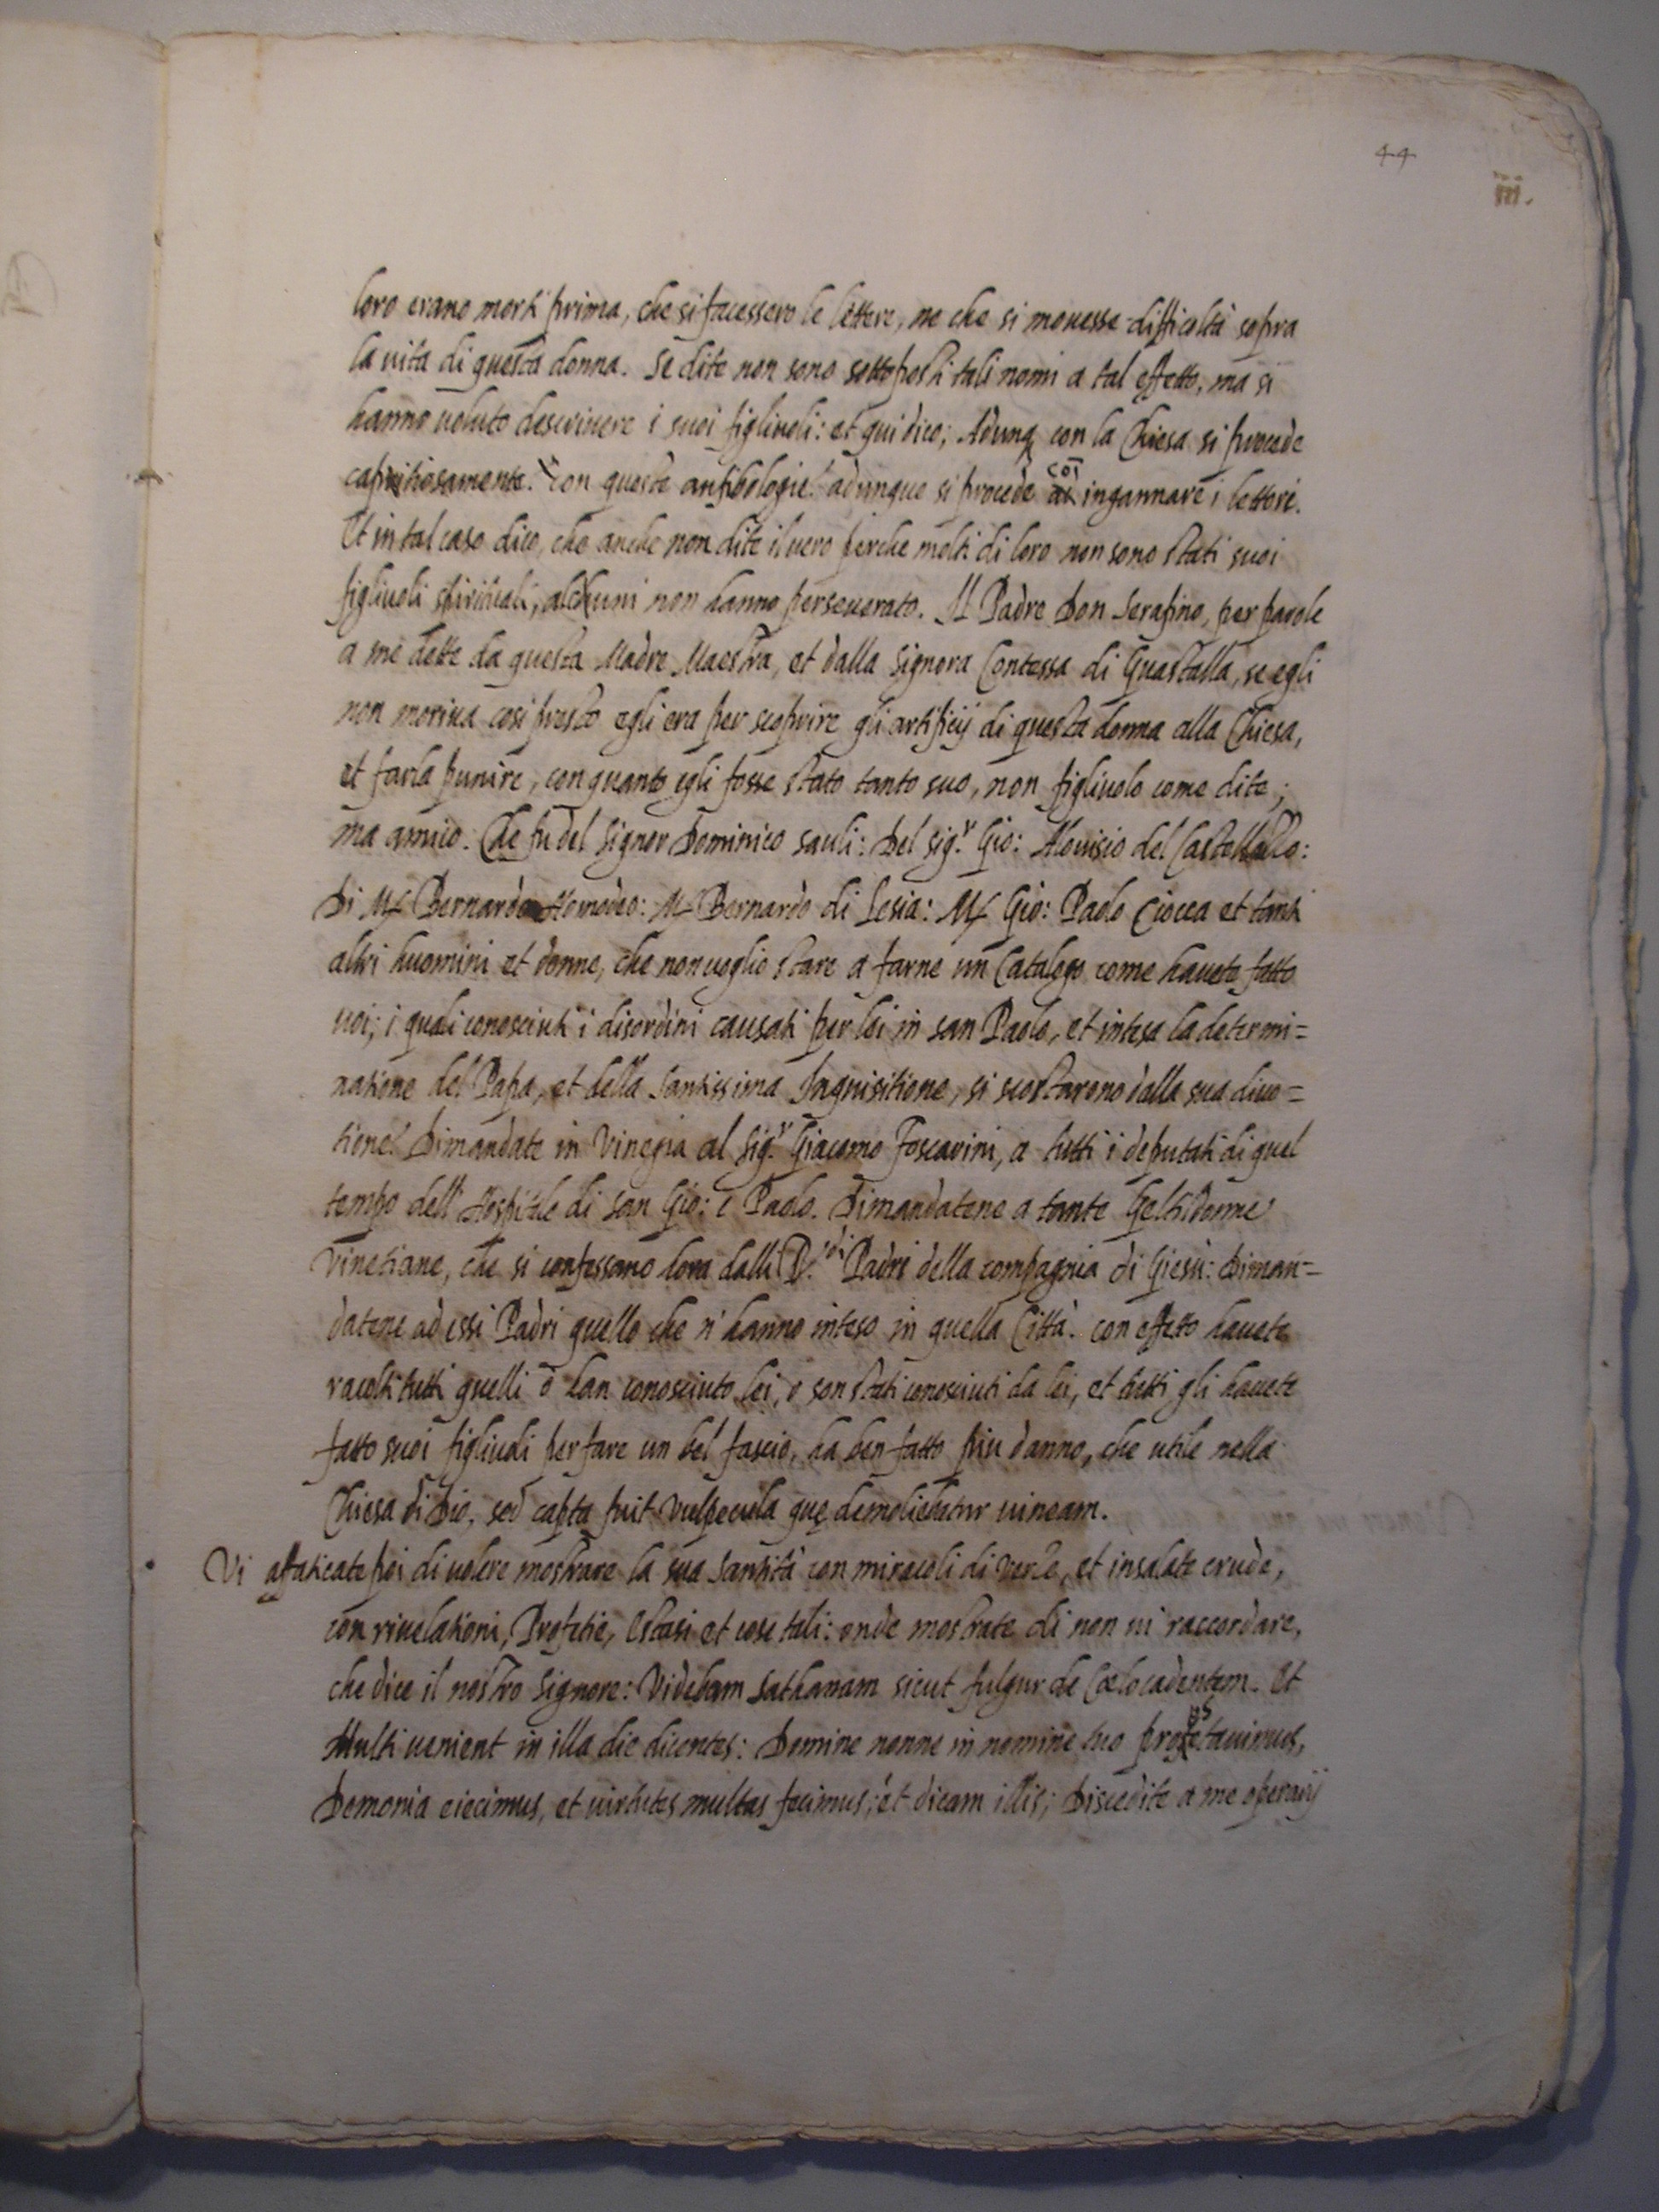 44
iii.
loro erano morti prima, che si facessero le lettere, ne che si mouesse difficoltà sopra
la uita di questa donna. Se dite non sono sottoposti tali nomi a tal effetto, ma si
hanno uoluto descriuere i suoi figliuoli: et qui dico; Adunq con la Chiesa si procede
capritiosamente. con queste anfibologie! adunque si procede ad ingannare i lettori.
Et in tal caso dico, che anche non dite il uero perche molti di loro non sono stati suoi
figliuoli spirituali, alchuni non hanno perseuerato. Il Padre Don Serafino, per parole
a me dette da questa Madre Maestra, et dalla Signora Contessa di Guastalla, se egli
non moriua cosi presto egli era per scoprire gli artificij di questa donna alla Chiesa,
et farla punire, con quanto egli fosse stato tanto suo, non figliuolo come dite;
ma amico. Che fu del Signor Dominico Sauli: Del Sig.r Gio: Alouisio del Castellazzo:
Di Ms Bernardo Homodeo: Ms Bernardo di Sesia: Ms Gio: Paolo Ciocca et tanti
altri huomini et donne, che non uoglio stare a farne un Catalogo come hauete fatto
uoi; i quali conosciuti i disordini causati per lei in san Paolo, et intesa la determi=
natione del Papa, et della Santissima Inquisitione, si scostarono dalla sua diuo=
tione! Dimandate in Vinegia al Sig.r Giacomo Foscarini, a tutti i deputati di quel
tempo dell' Hospitale di San Gio: e Paolo. Dimandatene a tante Gentildonne
Vinetiane, che si confessano hora dalli R.di Padri della compagnia di Giesù: Diman=
datene ad essi Padri quello che n' hanno inteso in quella Città. con effetto hauete
racolti tutti quelli ò han conosciuto lei, o son stati conosciuti da lei, et tutti gli hauete
fatto suoi figliuoli per fare un bel fascio, ha ben fatto piu danno, che utile nella
Chiesa di Dio, sed capta fuit Vulpecula quę demoliebatur uineam.
Vi affaticate poi di uolere mostrare la sua Santità con miracoli di Verze, et insalate crude,
con riuelationi, Profetie, Estasi et cose tali: onde mostrate di non ui raccordare,
che dice il nostro Signore: Videbam Sathanam sicut fulgur de Cœlo cadentem. Et
Multi uenient in illa die dicentes: Domine nonne in nomine tuo profetauimus,
Demonia eiecimus, et uirtutes multas fecimus; et dicam illis; Discedite a me operarij